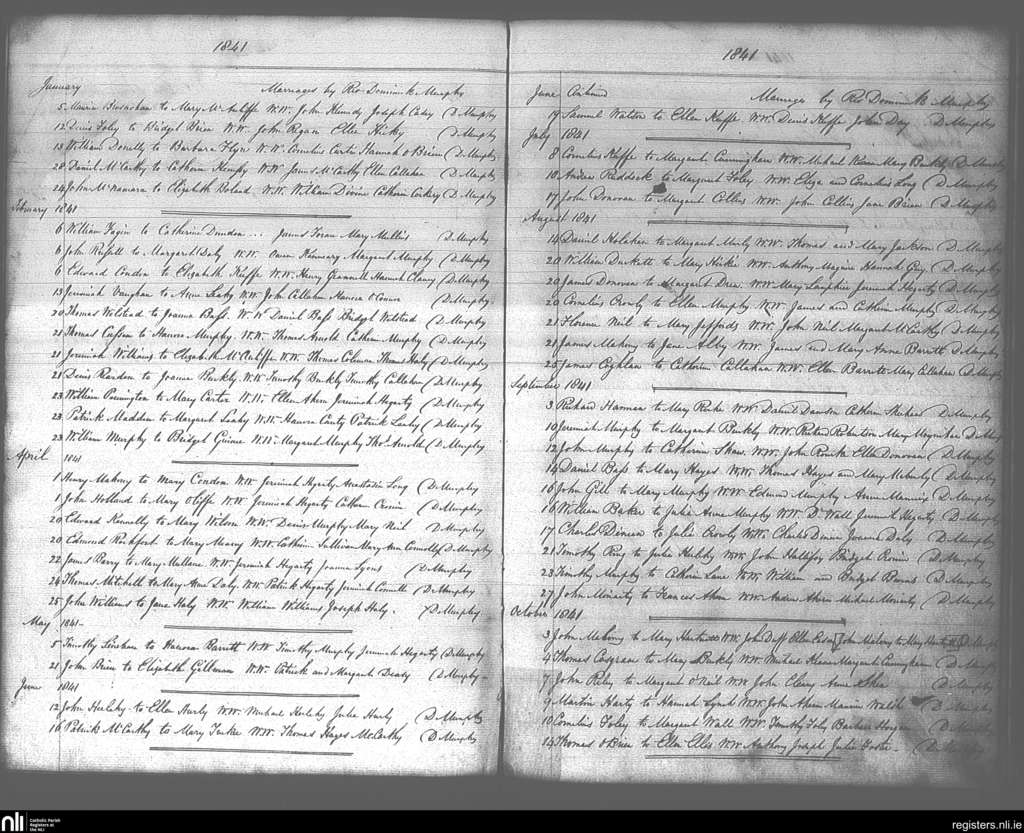 1841
January Marriages by Revd Dominick Murphy
5 to Mary McAuliffe W.W. John Kennedy Joseph Casey (D. Murphy
12 Denis Foley to Bridget Brien W.W. John Regan Ellen Hickey (D. Murphy
13 William Donelly to Barbara Flyn W.W. Cornelius Carter Hannah O Brien (D. Murphy
20 Daniel McCarthy to Catherine W.W. James McCarthy Ellen Callahan (D. Murphy
24 John McNamara to Elizabeth Boland W.W. William Divine Catherine Corkery (D. Murphy
February 1841
6 William Fagin to Catherine Dundon .. James Foran Mary Mullins (D. Murphy
6 John Russell to Margaret Daly W.W. Owen Margaret Murphy (D. Murphy
6 Edward Condon to Elizabeth Keeffe W.W. Henry Hannah Clancy (D. Murphy
13 Jeremiah Vaughan to Anne Leahy W.W. John Callahan Hanora O Connor (D. Murphy
20 Thomas Welstead to Joanna Bass W.W. Daniel Bass Bridget Welstead (D. Murphy
21 Thomas to Hanora Murphy W.W. Thomas Arnold Catherine Murphy (D. Murphy
21 Jeremiah Williams to Elizabeth McAuliffe W.W. Thomas Coleman Thomas Haly (D. Murphy
21 Denis Reardon to Joanna Buckly W.W. Timothy Buckly Timothy Callahan (D. Murphy
23 William Pennington to Mary Carter W.W. Ellen Ahern Jeremiah Hegarty (D. Murphy
23 Patrick Madden to Margaret Leahy W.W. Hanora Carty Patrick Leahy (D. Murphy
23 William Murphy to Bridget Guinee W.W. Margaret Murphy Thos. Arnold (D. Murphy
April 1841
1 Henry Mahony to Mary Condon W.W. Jeremiah Hegarty Anastasia Long (D. Murphy
1 John Holland to Mary W.W. Jeremiah Hegarty Catherine Cronin (D. Murphy
20 Edward Kennelly to Mary Wilson W.W. Denis Murphy Mary Neil (D. Murphy
20 Edmond Rochfort to Mary W.W. Catherine Sullivan Mary Ann Connolly (D. Murphy
22 James Barry to Mary Mullane W.W. Jeremiah Hegarty Joanna Lyons (D. Murphy
24 Thomas Mitchell to Mary Anne Daly W.W. Patrick Hegarty Jeremiah Connell (D. Murphy
25 John Williams to Jane Haly W.W. William Williams Joseph Haly. (D. Murphy
May 1841
5 Timothy to Hanora Barrett W.W. Timothy Murphy Jeremiah Hegarty (D. Murphy
21 John Brien to Elizabeth Gillman W.W. Patrick and Margaret Deady (D. Murphy
June 1841
12 John Herlihy to Ellen Hurly W.W. Michael Herlihy Julia Hurly (D. Murphy
16 Patrick McCarthy to Mary Tucker W.W. Thomas Hayes McCarthy (D. Murphy
1841
June Continued Marriages by Revd Dominick Murphy
19 Samuel Walton to Ellen Keeffe W.W. Denis Keeffe John Day D. Murphy
July 1841
8 Cornelius Keeffe to Margaret Cunningham W.W. Michael Mary Buckly D. Murphy
10 Andrew Reddock to Margaret Foley W.W. Eliza and Cornelius Long (D. Murphy
17 John Donovan to Margaret Collins W.W. John Collins Jane Brien (D. Murphy
August 1841
14 Daniel Holahan to Margaret W.W. Thomas and Mary Jackson (D. Murphy
20 William Duckett to Mary Hickie W.W. Anthony Maguire Hannah Guy (D. Murphy
20 James Donovan to Margaret Drew W.W. Mary Jeremiah Hegarty (D. Murphy
20 Cornelius Crowly to Ellen Murphy W.W. James and Catherine Murphy (D. Murphy
21 Florence Neil to Mary Jeffords W.W. John Neil Margaret McCarthy (D. Murphy
21 James Mahony to Jane Alby W.W. James and Mary Anne Barrett D. Murphy
25 James Coghlan to Catherine Callahan W.W. Ellen Barrett Mary Callahan (D. Murphy
September 1841
3 Richard Harman to Mary Rourke W.W. Daniel Dawson Catherine (D. Murphy
10 Jeremiah Murphy to Margaret Buckly W.W. Richard Robertson Mary (D. Murphy
12 John Murphy to Catherine Shaw W.W. John Rourke Ellen Donovan (D. Murphy
14 Daniel Bass to Mary Hayes W.W. Thomas Hayes and Mary (D. Murphy
16 John Gill to Mary Murphy W.W. Edmund Murphy Anne Manning (D. Murphy
16 William Baker to Julia Anne Murphy W.W. Dr Wall Jeremiah Hegarty (D. Murphy
17 Charles Duncan to Julia Crowly W.W. Charles Joanna Daly (D. Murphy
21 Timothy Roy to Julia Herlihy W.W. John Bridget Cronin (D. Murphy
23 Timothy Murphy to Catherine Lane W.W. William and Bridget Barns (D. Murphy
27 John Moriarty to Frances Ahern W.W. Andrew Ahern Michael Moriarty (D. Murphy
October 1841
3 John Mahony to Mary W.W. John Duff Ellen John Mahony to Mary (D. Murphy
4 Thomas Cosgrave to Mary Buckly W.W. Michael Margaret Cunningham (D. Murphy
7 John Riley to Margaret O Neil W.W. John Cleary Anne Shea (D. Murphy
9 Martin Harty to Hannah Lynch W.W. John Ahern Walsh (D. Murphy
10 Cornelius Foley to Margaret Wall W.W. Timothy Foley Barbara Horgan (D. Murphy
14 Thomas O Brien to Ellen Elles W.W. Anthony Joseph Julia Foster (D. Murphy
nli Catholic Parish Registers at the NLI
registers.nli.ie